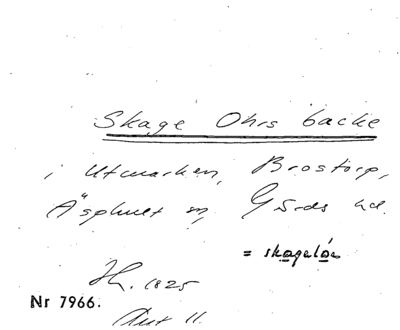 Skage Ohrs backe
i Utmarken, Brostorp,
Äsphult sn, Gärds hd.
= skagalås
1825
Nr 7966.
Akt 11.